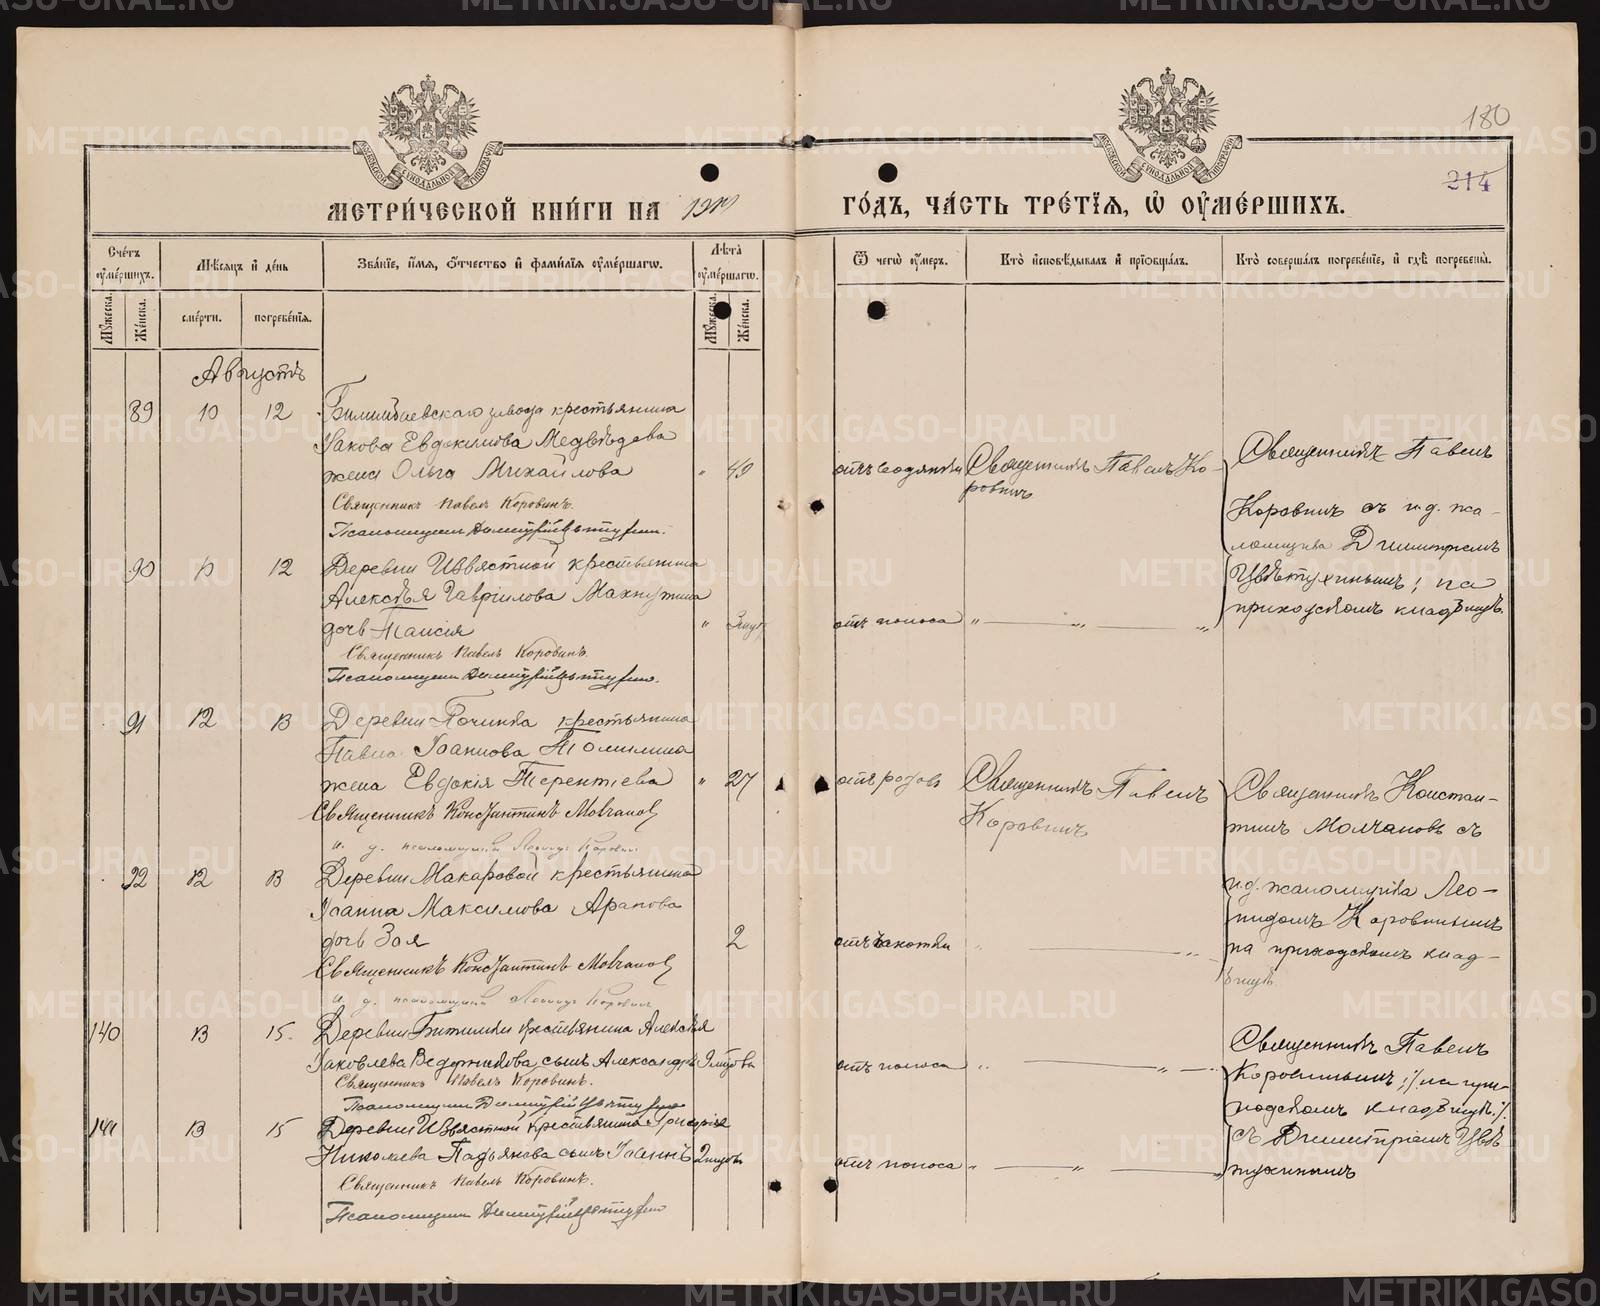 180
214
МЕТРИ́ЧЕСКОЙ КНИ́ГИ НА 1919
ГО́ДЪ, ЧА́СТЬ ТРЕ́ТЇЯ, Ѡ ОУ҆МЕ́РШИХЪ.
Сче́тъ оу҆ме́ршихъ.
Мѣ́сяцъ и҆ де́нь
Зва́нїе, и҆́мя, о҆́тчество и҆ фами́лїя оу҆ме́ршагѡ.
Лѣ́та оу҆ме́ршагѡ.
Ѿ чегѡ̀ оу҆́меръ.
Кто̀ и҆сповѣ́дывалъ и҆ прїѡбща́лъ.
Кто̀ соверша́лъ погребе́нїе, и҆ гдѣ̀ погребены̀.
Мꙋ́жеска.
Же́нска.
сме́рти.
погребе́нїя.
Мꙋ́жеска.
Же́нска.
Августъ
89 10 12 Билимбаевскаго завода крестьянина
Іакова Евдокимова Медвѣдева
жена Ольга Михайлова " 40
Священникъ Павелъ Коровинъ.
Псаломщикъ Димитрій Цвѣтухин.
отъ водянки Священникъ Павелъ Ко-
ровинъ
Священникъ Павелъ
Коровинъ съ и. д. пса-
ломщика Димитріемъ
Цвѣтухинымъ; на
приходскомъ кладбищѣ.
90 10 12 Деревни Извястной крестьянина
Алексѣя Гавріилова Махнутина
дочь Таисія "
Священникъ Павелъ Коровинъ.
Псаломщикъ Димитрій Цвѣтухин.
отъ поноса " — " — "
91 12 13 Деревни Починка крестьянина
Павла Іоаннова Томилина
жена Евдокія Терентіева " 27
Священникъ Константинъ Молчановъ
и. д. псаломщика Леонидъ Коровин
отъ родовъ Священникъ Павелъ
Коровинъ
Священникъ Констан-
тинъ Молчановъ съ
и. д. псаломщика Лео-
нидомъ Коровинымъ
на приходскомъ клад-
бищѣ.
92 12 13 Деревни Макаровой крестьянина
Іоанна Максимова Арапова
дочь Зоя 2
Священникъ Константинъ Молчановъ
и. д. псаломщика Леонидъ Коровин
отъ чахотки " — "
140 13 15. Деревни Битимки крестьянина Алексѣя
Яковлева Ведерникова сынъ Александръ 9 мѣсяцовъ
Священникъ Павелъ Коровинъ.
Псаломщикъ Димитрій Цвѣтухин
отъ поноса " — " —
Священникъ Павелъ
Коровинымъ; /на при-
ходскомъ кладбищѣ./
съ Димитріемъ Цвѣ
тухинымъ
141 13 15 Деревни Извястной крестьянина Григорія
Николаева Падьянова сынъ Іоаннъ 2 мѣсяцовъ
Священникъ Павелъ Коровинъ.
Псаломщикъ Димитрій Цвѣтухин
отъ поноса " — " —
METRIKI.GASO-URAL.RU